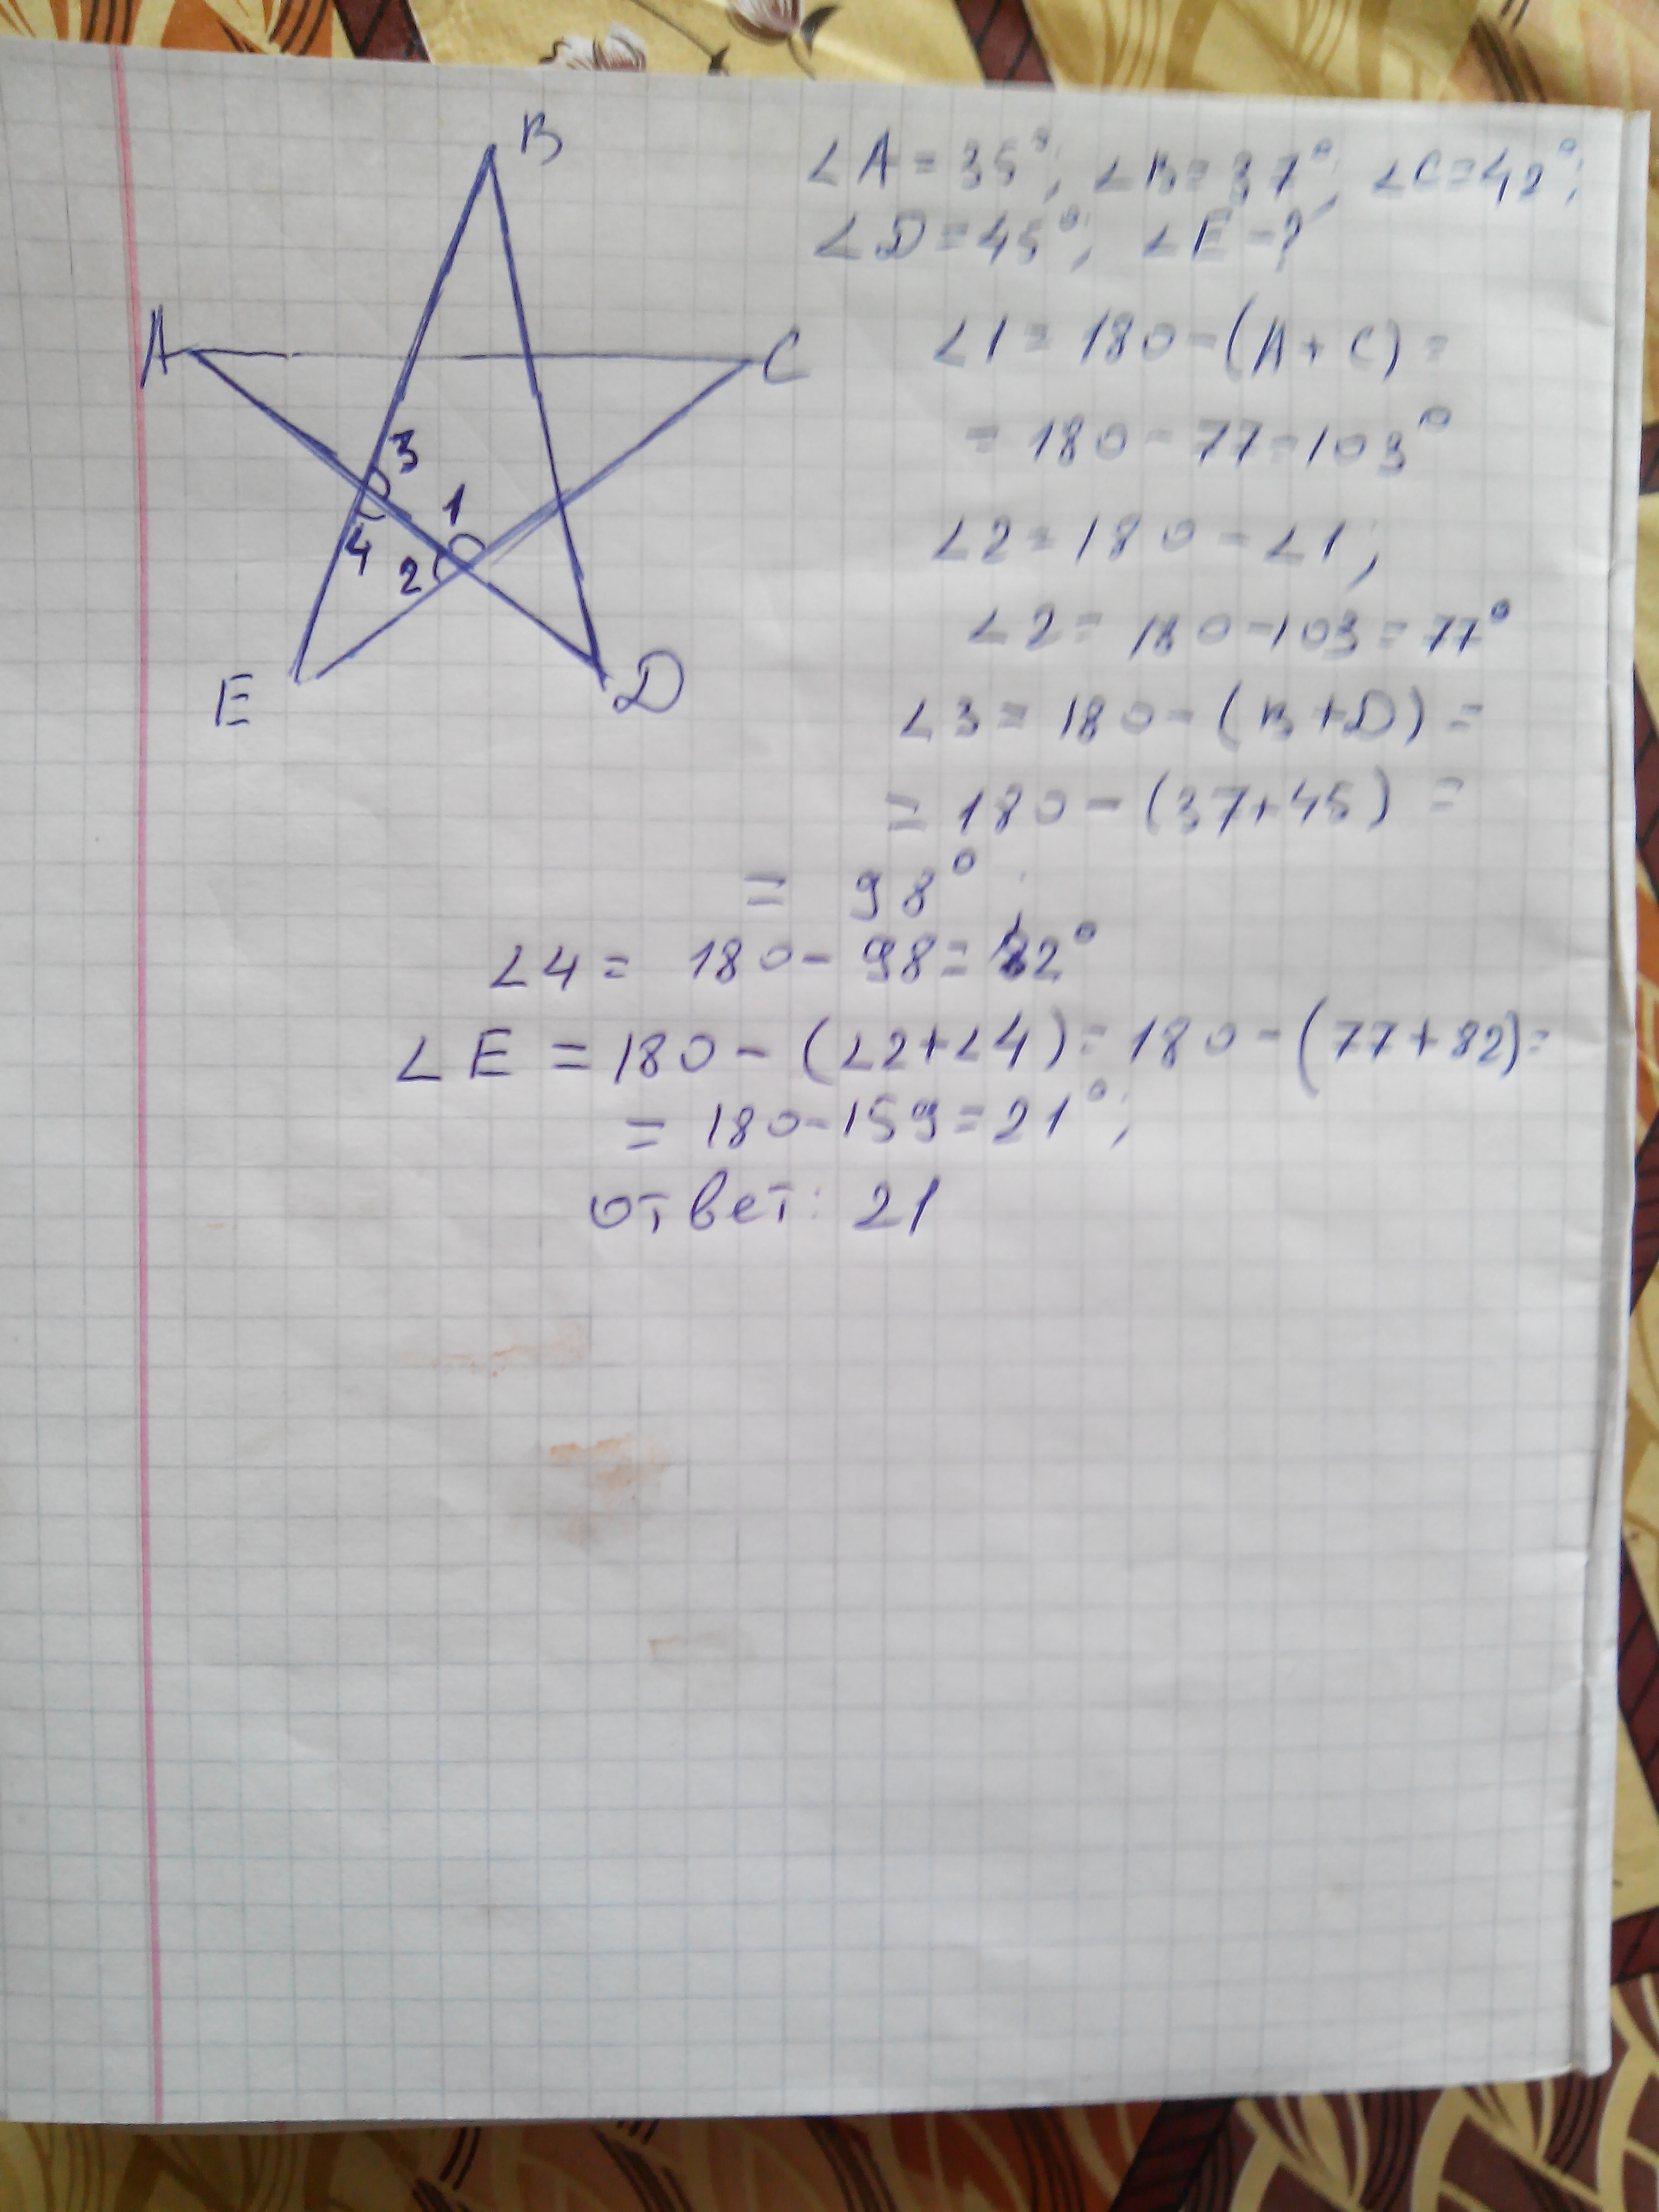 B
A
C
3
1
4
2
E
D
∠A = 35°; ∠B = 37°; ∠C = 42°;
∠D = 45°; ∠E - ?
∠1 = 180 - (A + C) =
= 180 - 77 = 103°
∠2 = 180 - ∠1;
∠2 = 180 - 103 = 77°
∠3 = 180 - (B + D) =
= 180 - (37 + 45) =
= 98°;
∠4 = 180 - 98 = 82°
∠E = 180 - (∠2 + ∠4) = 180 - (77 + 82) =
= 180 - 159 = 21°;
ответ: 21